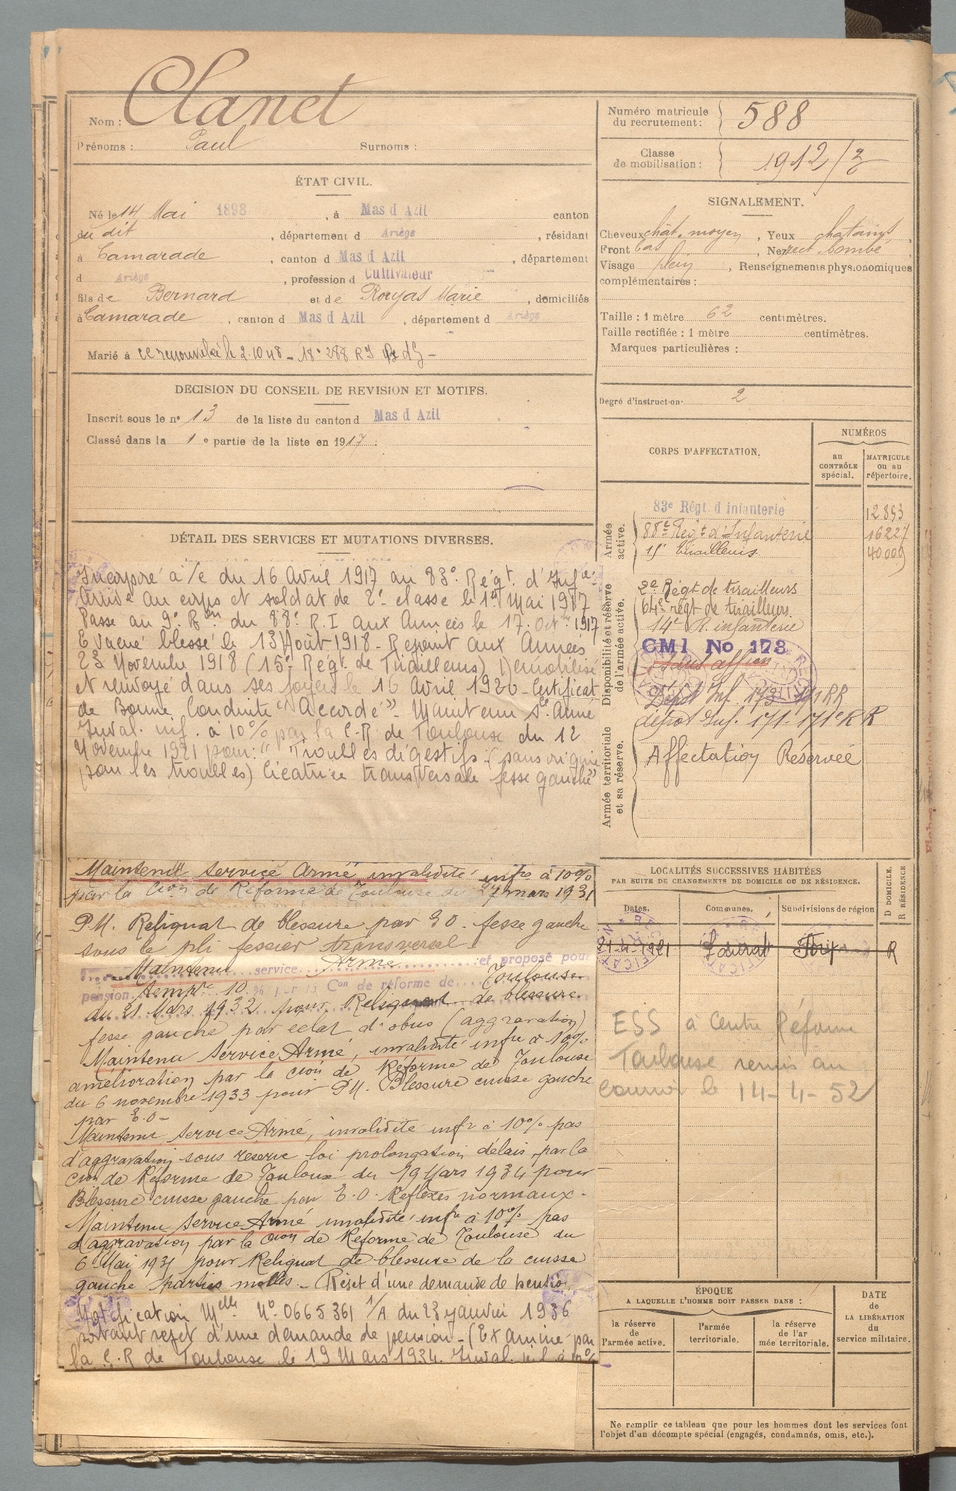 Nom : Clanet
Prénoms : Paul Surnoms :
ÉTAT CIVIL.
Né le 14 Mai 1898, à Mas d Azil canton
du dit, département d Ariège, résidant
à Camarade, canton d Mas d Azil, département
d Ariège, profession d Cultivateur
fils de Bernard et de Rouyas Marie, domiciliés
à Camarade, canton d Mas d Azil, département d Ariège
Marié à
DECISION DU CONSEIL DE REVISION ET MOTIFS.
Inscrit sous le n° 13 de la liste du canton d Mas d Azil
Classé dans la 1e partie de la liste en 1917.
DÉTAIL DES SERVICES ET MUTATIONS DIVERSES.
Incorporé à /c du 16 Avril 1917 au 83e Régt. d'Infie
Arrivé au corps et soldat de 2e classe le 1er Mai 1917
Passé au 9e Bon du 88e R.I aux Armées le 17 Octbre 1917
Evacué blessé le 13 Août 1918. Rejoint aux Armées
23 Novembre 1918 (15e Régt. de Tirailleurs) Démobilisé
et renvoyé dans ses foyers le 16 Avril 1920 - Certificat
de Bonne Conduite "Accordé". Maintenu S. Armé
Inval. inf. à 10% par la C.R de Toulouse du 12
Novembre 1921 pour: "Troubles digestifs (sans origine
pour les troubles) Cicatrice transversale fesse gauche"
Maintenu service Armé invalidité infre à 10%
par la Cion de Réforme de Toulouse du 27 mars 1931
P.M. Reliquat de blessure par E.O. fesse gauche
sous le pli fessier transversal
Maintenu service Armé et proposé pour
pension tempre 10 % par la Con de réforme de Toulouse
du 21 Mars 1932 pour Reliquat de blessure
fesse gauche par éclat d'obus (aggravation)
Maintenu service Armé, invalidité infre à 10%
amélioration par la Cion de Réforme de Toulouse
du 6 novembre 1933 pour P.M. Blessure cuisse gauche
par E.O -
Maintenu service Armé, invalidité infre à 10% pas
d'aggravation sous réserve loi prolongation délais par la
Cion de Réforme de Toulouse du 19 Mars 1934 pour
Blessure cuisse gauche par E.O. Réflexes normaux -
Maintenu service Armé invalidité infre à 10% pas
d'aggravation par la Cion de Réforme de Toulouse du
6 Mai 193 pour Reliquat de blessure de la cuisse
gauche parties molles - Rejet d'une demande de pension
Notification Melle N° 0665361 1/A du 23 janvier 1936
portant rejet d'une demande de pension - (Examiné par
la C.R de Toulouse le 19 Mars 1934. Inval.
Numéro matricule
du recrutement : 588
Classe
de mobilisation : 1912/3
SIGNALEMENT.
Cheveux chât. moyen, Yeux chatains
Front bas, Nez rect. bombé
Visage plein, Renseignements physionomiques
complémentaires :
Taille : 1 mètre 62 centimètres.
Taille rectifiée : 1 mètre centimètres.
Marques particulières :
Degré d'instruction : 2
CORPS D'AFFECTATION.
NUMÉROS
AU CONTRÔLE spécial.
MATRICULE ou au répertoire.
Armée active.
83e Régt. d infanterie 12893
88e Régt d'Infanterie 16227
15e tirailleurs 40009
Disponibilité et réserve de l'armée active.
2e Régt de tirailleurs
64e régt de tirailleurs
14e R. infanterie
CMI No 173
Dépôt Inf. 173
dépôt Inf. 171. 171e R R
Armée territoriale et sa réserve.
Affectation Réservée
LOCALITÉS SUCCESSIVES HABITÉES
PAR SUITE DE CHANGEMENTS DE DOMICILE OU DE RÉSIDENCE.
D DOMICILE. R RÉSIDENCE
Dates. Communes. Subdivisions de région
21-4-1921 Foix R
ESS à Centre Réforme
Toulouse remis au
courrier le 14-4-52
ÉPOQUE
A LAQUELLE L'HOMME DOIT PASSER DANS :
la réserve de l'armée active.
l'armée territoriale.
la réserve de l'armée territoriale.
DATE de LA LIBÉRATION du service militaire.
Ne remplir ce tableau que pour les hommes dont les services font
l'objet d'un décompte spécial (engagés, condamnés, omis, etc.).